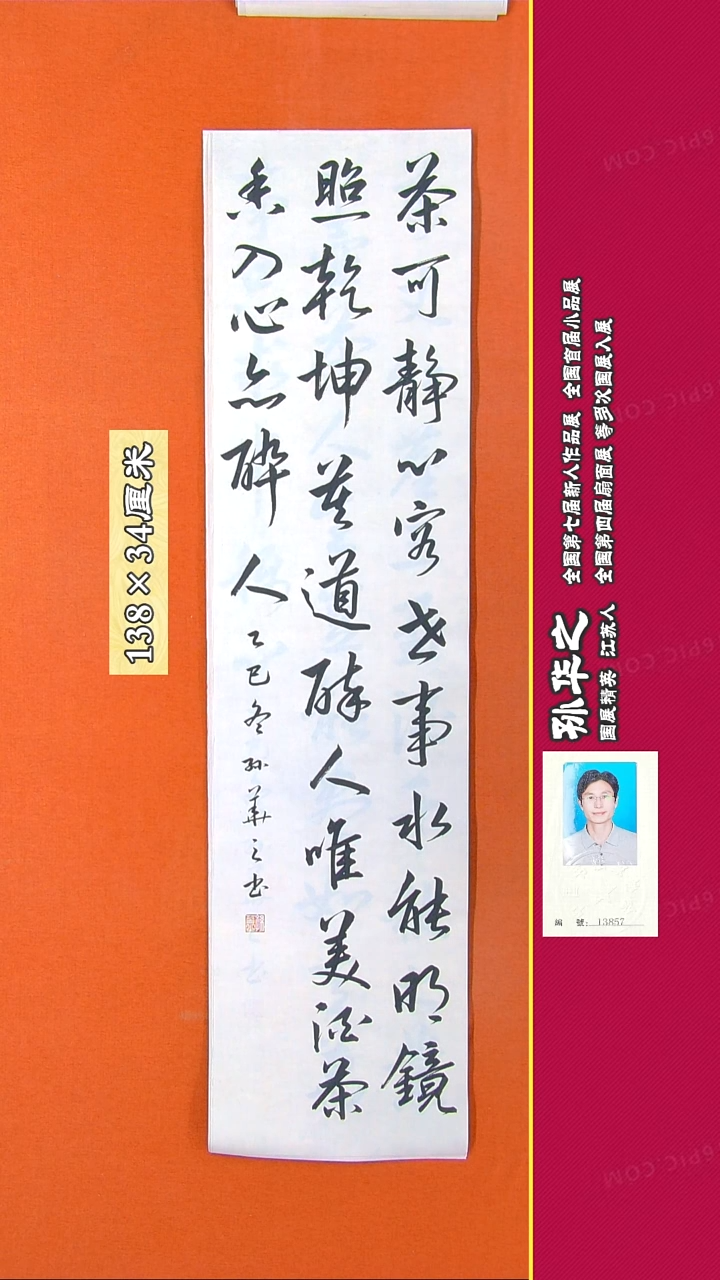 茶可静心容世事水能明鏡
照乾坤莫道醉人唯美酒茶
香入心亦醉人
乙巳冬孙華之书
138×34厘米
孙华之
国展精英 江苏人
全国第七届新人作品展 全国首届小品展
全国第四届扇面展 等多次国展入展
編 號: 13857
6PIC.COM